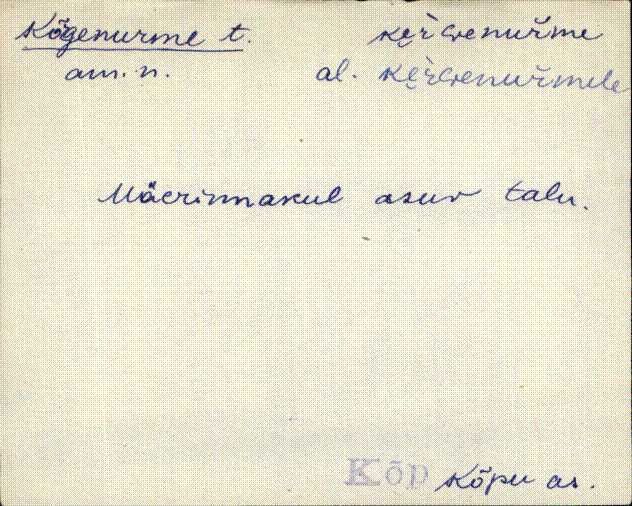 Kõgenurme t. kẹ̀rGenuřme
am. n. al. kẹ̀rGenuřmele
Mäerinnakul asuv talu.
Kõp Kõpu as.